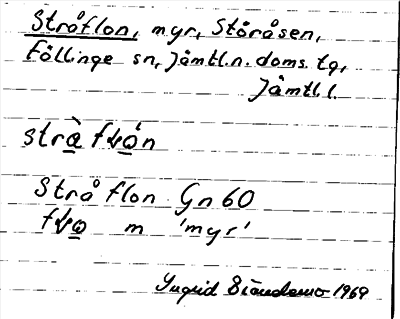 Stråflon, myr, Storåsen,
Föllinge sn, Jämtl.n. doms. tg,
Jämtl. l.
strà flo̱´n
Strå flon Gn 60
flo̱ m 'myr'
Ingrid 1969